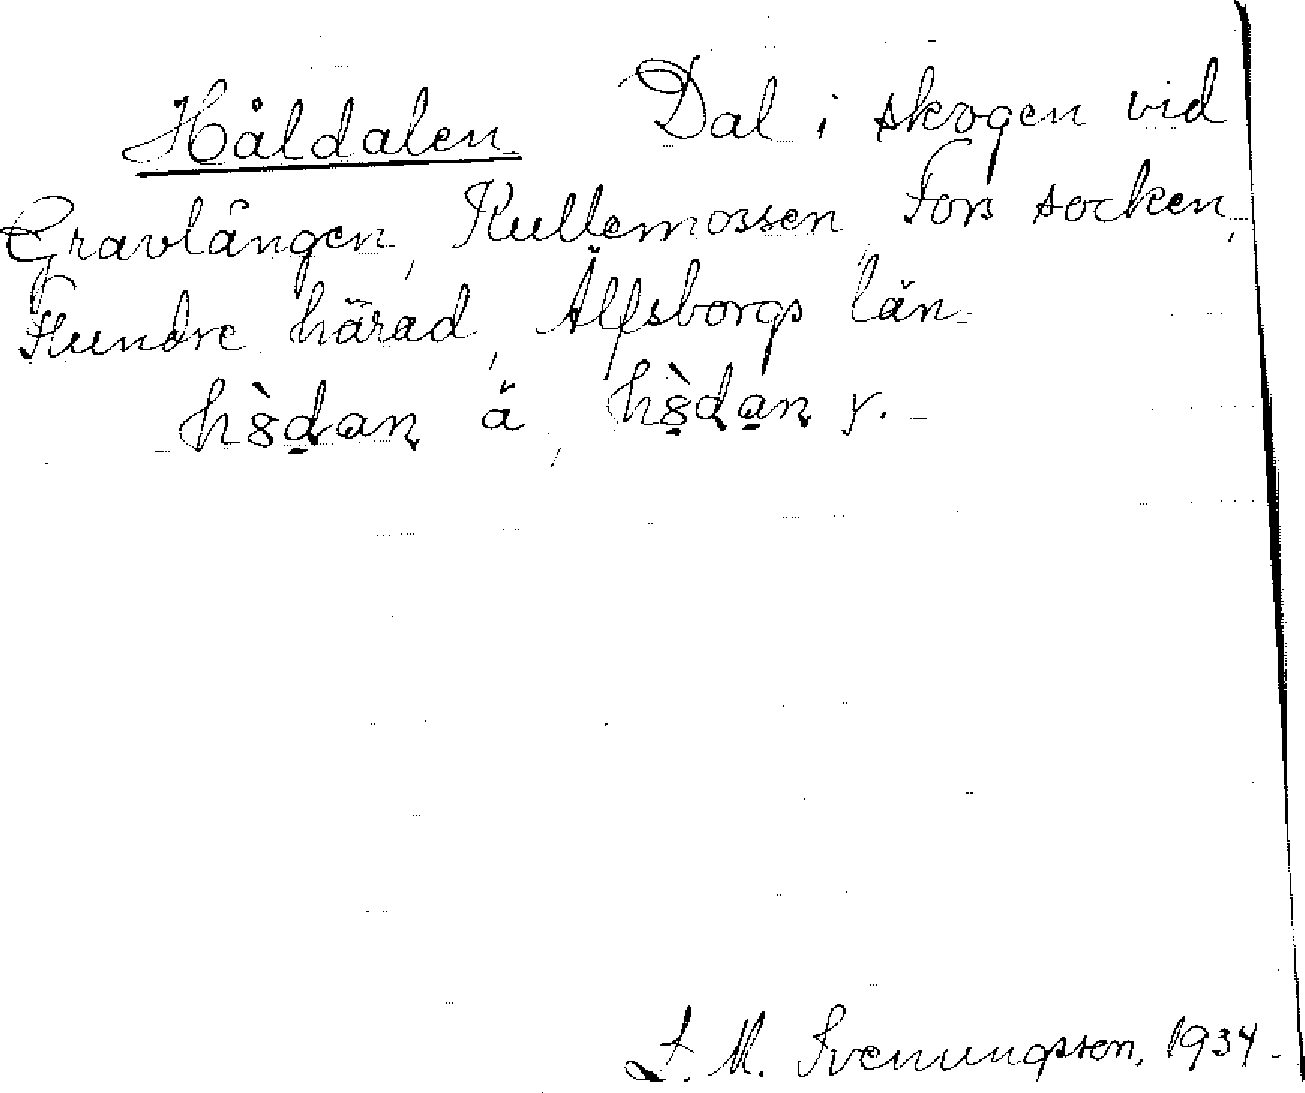 Håldalen Dal i skogen vid
Gravlången, Kullemossen, Fors socken,
Flundre härad, Älfsborgs län.
ä, y.
L. M. Svenungsson, 1934.